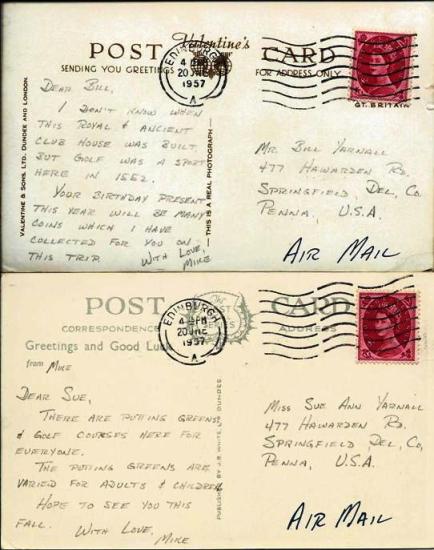 POST Valentine's CARD
SENDING YOU GREETINGS FOR ADDRESS ONLY
EDINBURGH
4 PM
20 JNE
1957
A
GT. BRITAIN
VALENTINE & SONS, LTD., DUNDEE AND LONDON.
THIS IS A REAL PHOTOGRAPH
DEAR BILL,
I DON'T KNOW WHEN
THIS ROYAL & ANCIENT
CLUB HOUSE WAS BUILT
BUT GOLF WAS A SPORT
HERE IN 1552.
YOUR BIRTHDAY PRESENT
THIS YEAR WILL BE MANY
COINS WHICH I HAVE
COLLECTED FOR YOU ON
THIS TRIP.
WITH LOVE,
MIKE
MR. BILL YARNALL
477 HAWARDEN RD.
SPRINGFIELD DEL. CO.
PENNA, U.S.A.
AIR MAIL
POST CARD
CORRESPONDENCE ADDRESS
Greetings and Good Luck
from MIKE
EDINBURGH
4 PM
20 JNE
1957
A
PUBLISHED BY J.B. WHITE, LTD DUNDEE
DEAR SUE,
THERE ARE PUTTING GREENS
& GOLF COURSES HERE FOR
EVERYONE.
THE PUTTING GREENS ARE
VARIED FOR ADULTS & CHILDREN
HOPE TO SEE YOU THIS
FALL.
WITH LOVE,
MIKE
MISS SUE ANN YARNALL
477 HAWARDEN RD.
SPRINGFIELD DEL. CO.
PENNA, U.S.A.
AIR MAIL